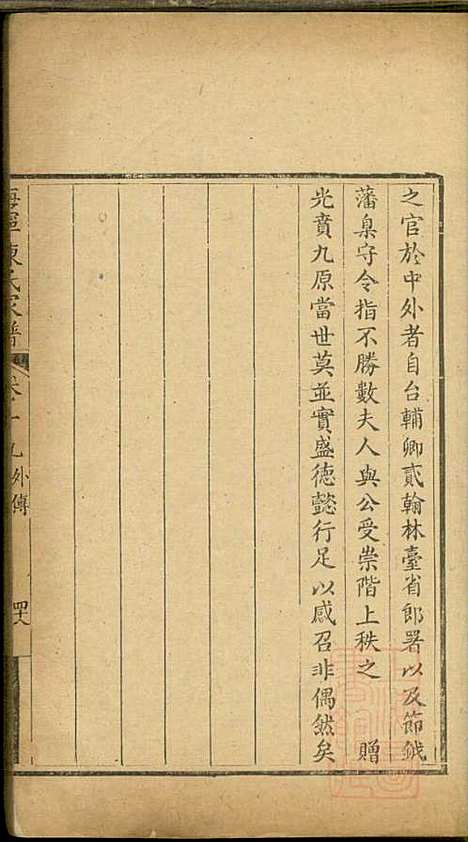 之官於中外者自台輔卿貳翰林臺省郎署以及節鉞
藩臬守令指不勝數夫人與公受崇階上秩之 贈
光賁九原當世莫並實盛德懿行足以感召非偶然矣
海寧陳氏家譜 卷十九外傳